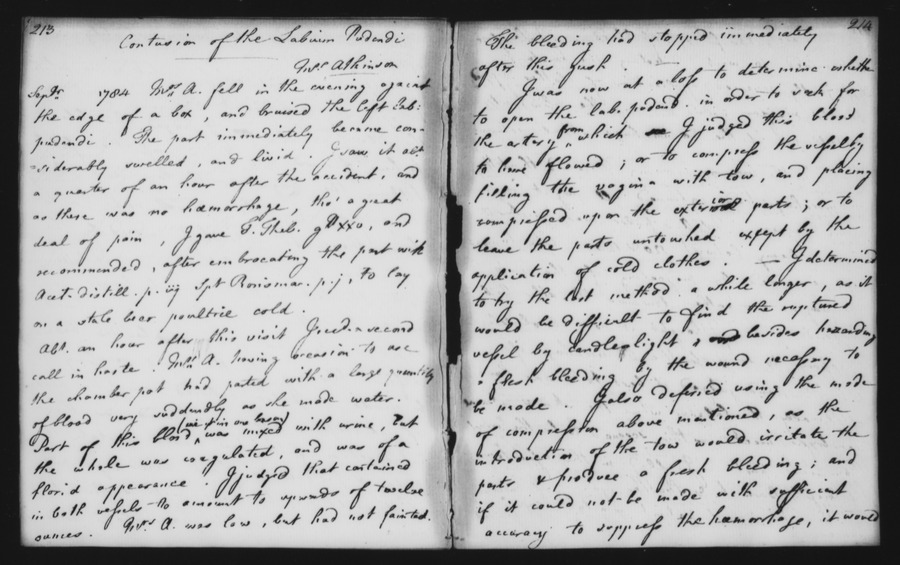 213
Contusion of the Labium Pudendi
Mrs. Atkinson
Septr. 1784 Mrs. A. fell in the evening against
the edge of a box, and bruised the left Lab:
pudendi. The part immediately became con-
-siderably swelled, and livid. I saw it abt.
a quarter of an hour after the accident, and
as there was no hæmorrhage, tho' a great
deal of pain, I gave T. Theb. gt xxv, and
recommended, after embrocating the part with
Acet. distill. p. iij Spt Rorismar. p. j, to lay
on a stale beer poultice cold.
Abt. an hour after this visit I recd. a second
call in haste. Mrs. A. having occasion to use
the chamber pot had parted with a large quantity
of blood very suddenly as she made water.
Part of this blood was mixed with urine, but
the whole was coagulated, and was of a
florid appearance. I judged that contained
in both vessels to amount to upwards of twelve
ounces. Mrs. A. was low, but had not fainted.
214
The bleeding had stopped immediately
after this gush.
I was now at a loss to determine whether
to open the lab. pudend. in order to seek for
the artery from which I judged this blood
to have flowed; or to compress the vessel by
filling the vagina with tow, and placing
compresses upon the exterior parts; or to
leave the parts untouched except by the
application of cold clothes. — I determined
to try the last method a while longer, as it
would be difficult to find the ruptured
vessel by candlelight & besides hazarding
a fresh bleeding by the wound necessary to
be made. I also deferred using the mode
of compression above mentioned, as the
introduction of the tow would irritate the
parts & produce a fresh bleeding; and
if it could not be made with sufficient
accuracy to suppress the hæmorrhage, it would